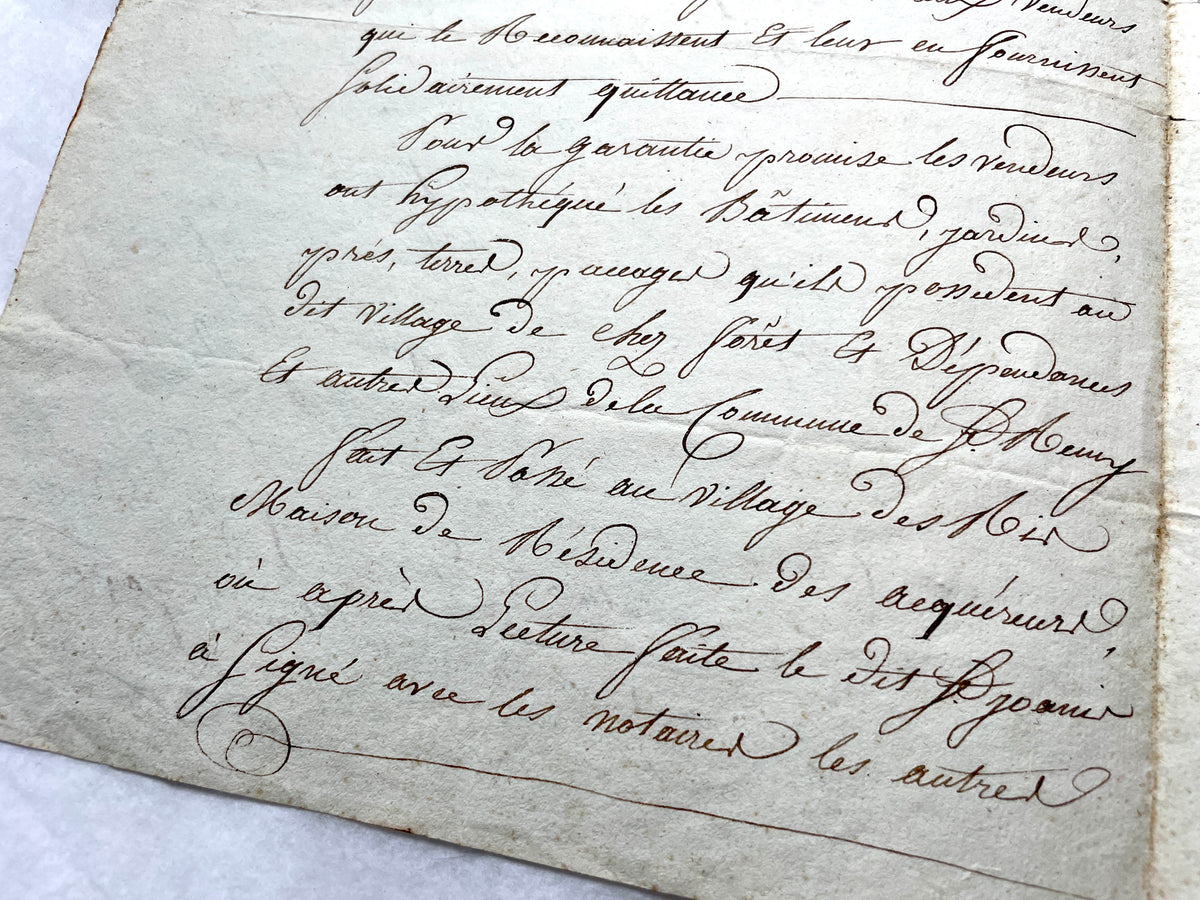 vendeurs
qui le Reconnaissent Et leur en fournissent
solidairement quittance
Pour la garantie promise les vendeurs
ont hypothéqué les Bâtiments, jardins,
prés, terres, pacages qu'ils possedent au
dit village de chez forêt Et Dépendances
Et autres Lieux de la Commune de St. Remy
fait Et Passé au village des Ris
Maison de Résidence des acquéreurs,
où après Lecture faite le dit Sr. joanis
à signé avec les notaires les autres